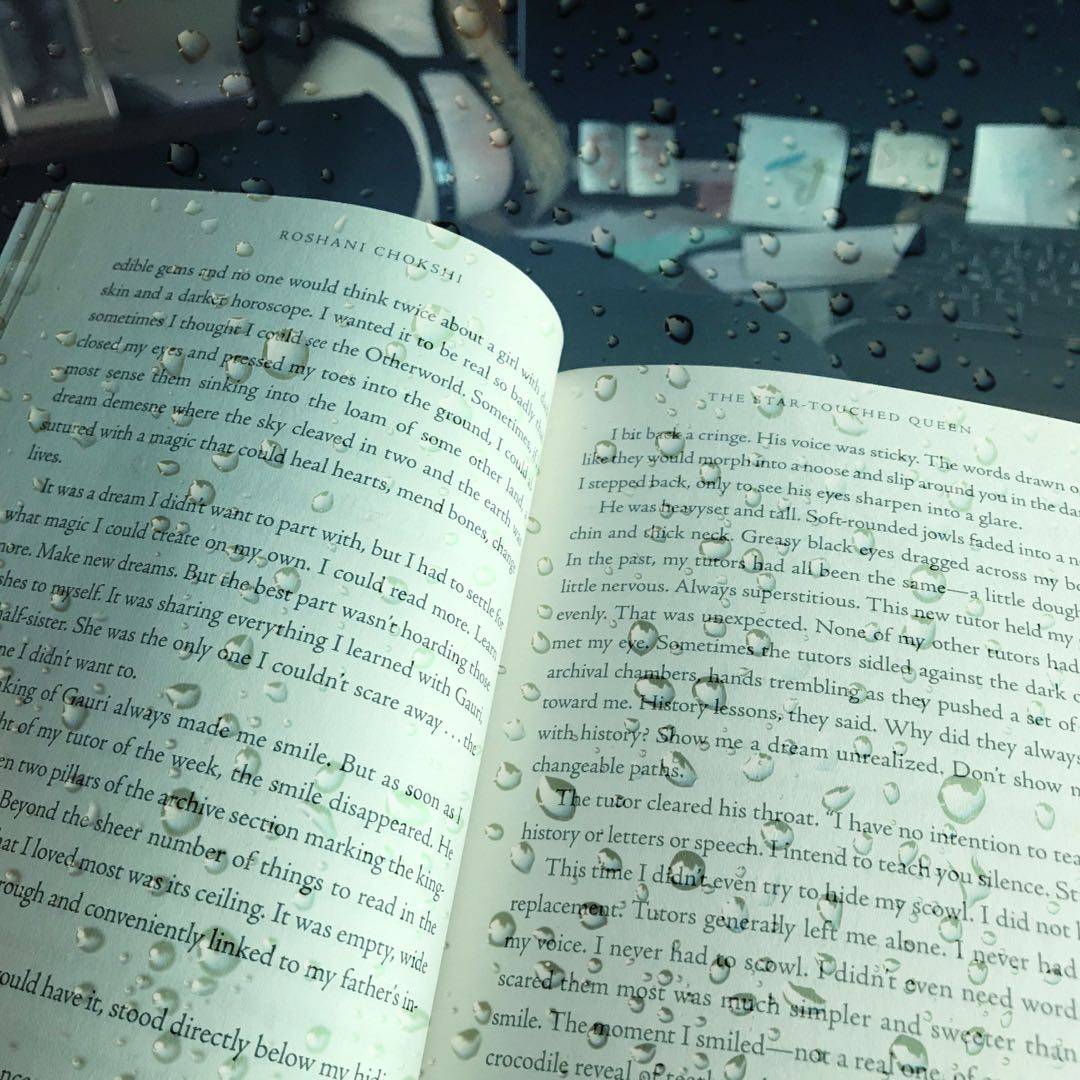 ROSHANI CHOKSHI
edible gems and no one would think twice about a girl with
skin and a darker horoscope. I wanted it to be real so badly
sometimes I thought I could see the Otherworld. Sometimes,
closed my eyes and pressed my toes into the ground, I could
most sense them sinking into the loam of some other land,
dream demesne where the sky cleaved in two and the earth was
sutured with a magic that could heal hearts, mend bones, change
lives.
It was a dream I didn't want to part with, but I had to settle for
what magic I could create on my own. I could read more. Learn
more. Make new dreams. But the best part wasn't hoarding those
shes to myself. It was sharing everything I learned with Gauri,
half-sister. She was the only one I couldn't scare away . . . the
ne I didn't want to.
king of Gauri always made me smile. But as soon as I
ht of my tutor of the week, the smile disappeared. He
en two pillars of the archive section marking the king-
Beyond the sheer number of things to read in the
hat I loved most was its ceiling. It was empty, wide
rough and conveniently linked to my father's in-
ould have it, stood directly below my hidi
THE STAR-TOUCHED QUEEN
I bit back a cringe. His voice was sticky. The words drawn o
like they would morph into a noose and slip around you in the da
I stepped back, only to see his eyes sharpen into a glare.
He was heavyset and tall. Soft-rounded jowls faded into a
chin and thick neck. Greasy black eyes dragged across my
In the past, my tutors had all been the same—a little dough
little nervous. Always superstitious. This new tutor held my
evenly. That was unexpected. None of my other tutors had
met my eye. Sometimes the tutors sidled against the dark
archival chambers, hands trembling as they pushed a set of
toward me. History lessons, they said. Why did they always
with history? Show me a dream unrealized. Don't show
changeable paths.
The tutor cleared his throat. "I have no intention to tea
history or letters or speech. I intend to teach you silence. St
This time I didn't even try to hide my scowl. I did not
replacement. Tutors generally left me alone. I never had
my voice. I never had to scowl. I didn't even need word
scared them most was much simpler and sweeter than
smile. The moment I smiled—not a real one, of
crocodile reveal of